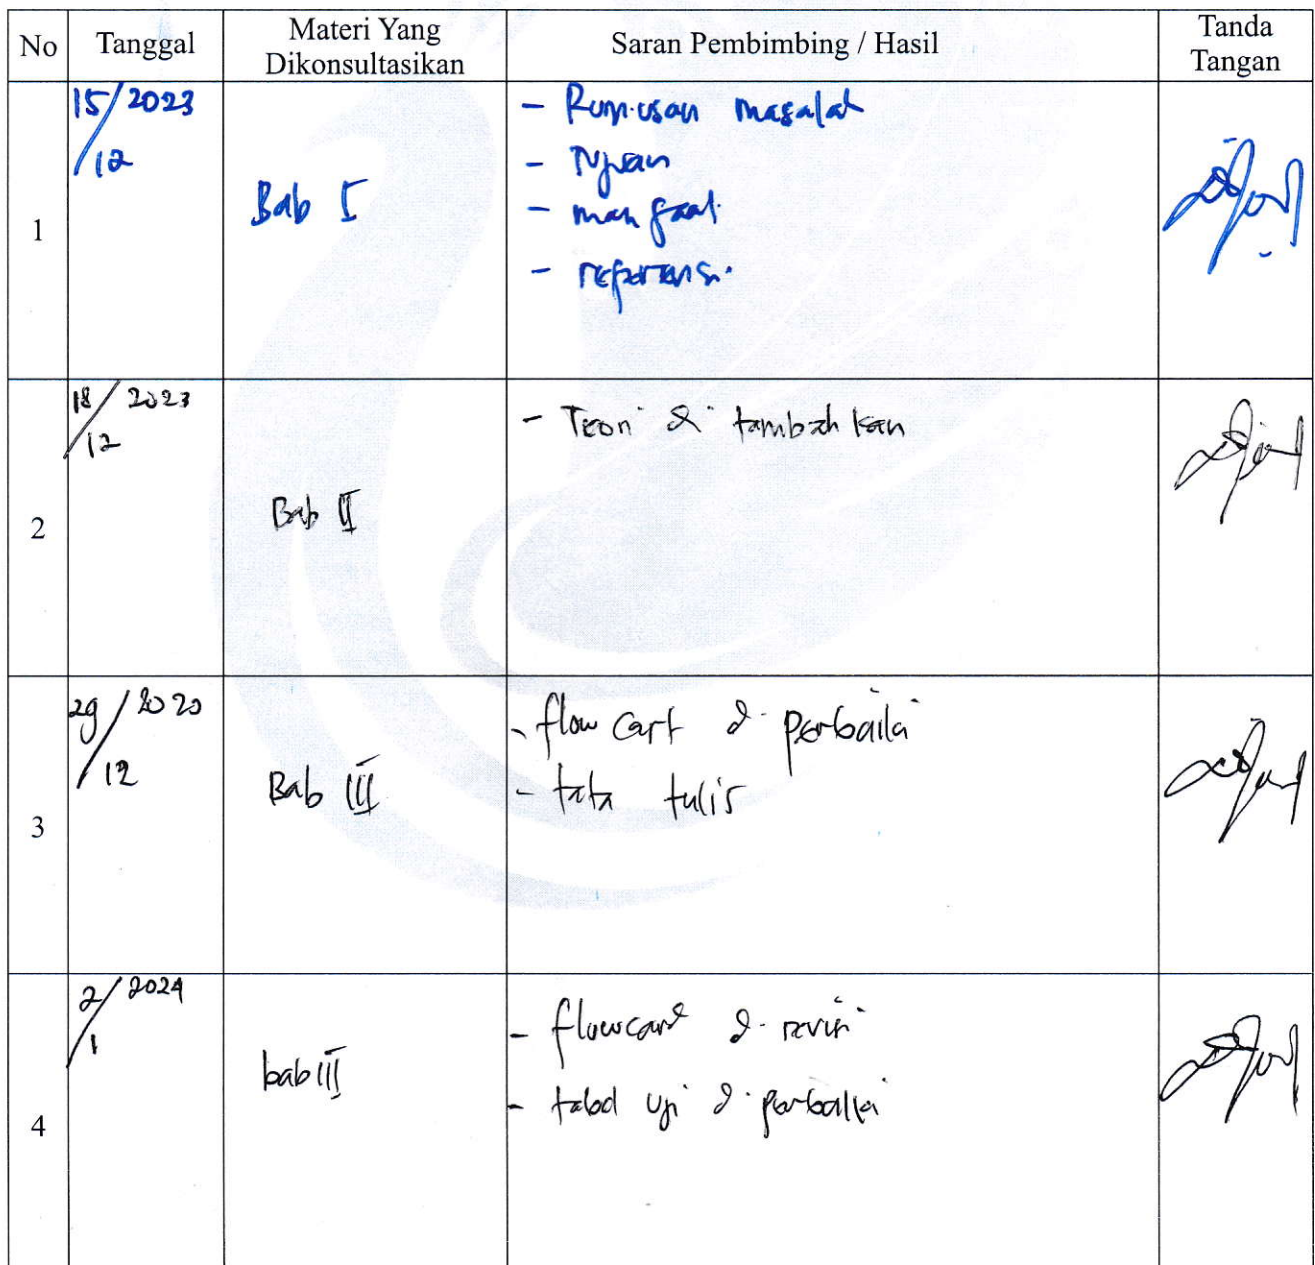 No Tanggal Materi Yang Dikonsultasikan Saran Pembimbing / Hasil Tanda Tangan
15/12 2023
1 Bab I
- Rumusan masalah
- Tujuan
- manfaat
- referensi
18/12 2023
2 Bab II
- Teori di tambahkan
29/12 2023
3 Bab III
- flow cart di perbaiki
- tata tulis
2/1 2024
4 bab III
- flowcart di revisi
- tabel uji di perbaiki